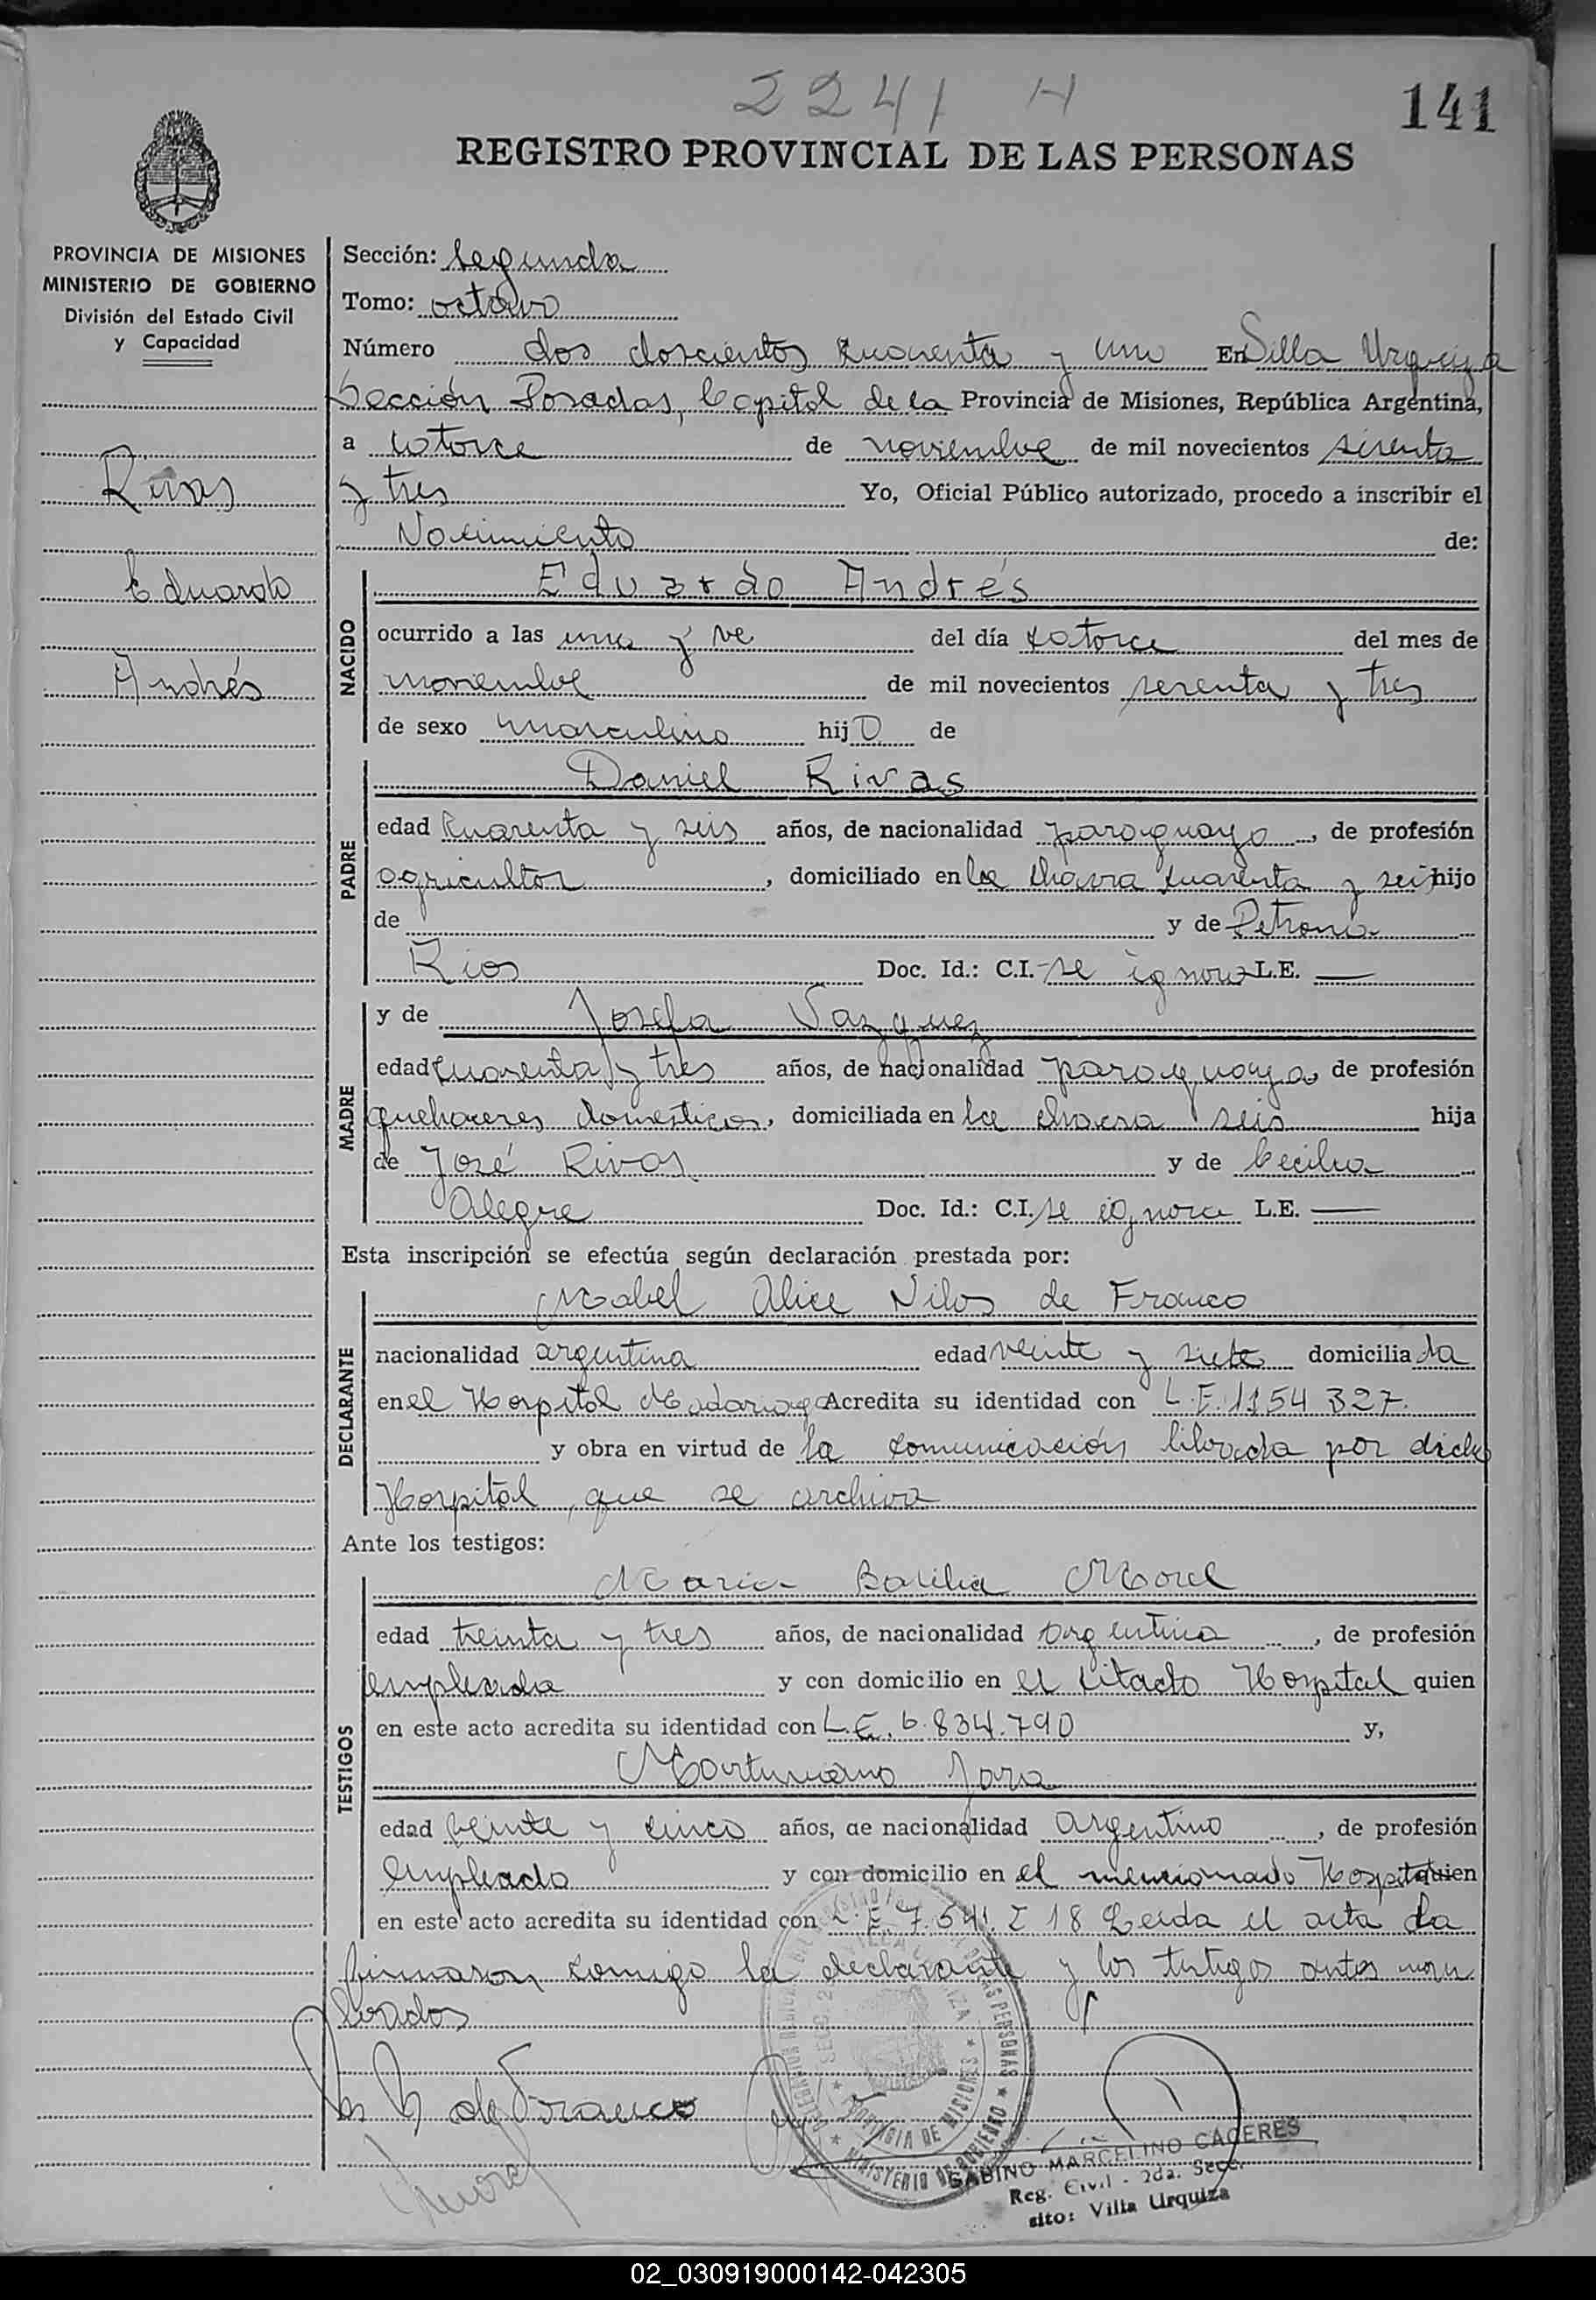 2241 H
141
REGISTRO PROVINCIAL DE LAS PERSONAS
PROVINCIA DE MISIONES
MINISTERIO DE GOBIERNO
División del Estado Civil
y Capacidad
Rivas
Eduardo
Andrés
Sección: Segunda
Tomo: octavo
Número dos doscientos cuarenta y uno En Villa Urquiza
Sección Posadas, Capital de la Provincia de Misiones, República Argentina,
a catorce de noviembre de mil novecientos sesenta
y tres Yo, Oficial Público autorizado, procedo a inscribir el
Nacimiento de:
NACIDO
Eduardo Andrés
ocurrido a las una y del día catorce del mes de
noviembre de mil novecientos sesenta y tres
de sexo masculino hijo de
PADRE
Daniel Rivas
edad cuarenta y seis años, de nacionalidad paraguayo, de profesión
agricultor, domiciliado en la chacra cuarenta y seis hijo
de y de Petrona
Rios Doc. Id.: C.I. se ignora L.E. —
MADRE
y de Josefa Vazquez
edad cuarenta y tres años, de nacionalidad paraguaya, de profesión
quehaceres domesticos, domiciliada en la chacra seis hija
de José Rivas y de Cecilia
Alegre Doc. Id.: C.I. se ignora L.E. —
Esta inscripción se efectúa según declaración prestada por:
DECLARANTE
Mabel Alice de Franco
nacionalidad argentina edad veinte y siete domiciliada
en el Hospital Madariaga Acredita su identidad con L.E. 1154327.
y obra en virtud de la comunicación librada por dicho
Hospital, que se archiva
Ante los testigos:
TESTIGOS
Maria Basilia Morel
edad treinta y tres años, de nacionalidad argentina, de profesión
empleada y con domicilio en el citado Hospital quien
en este acto acredita su identidad con L.E. 6.834.790 y,
Martiniano Jara
edad veinte y cinco años, de nacionalidad Argentino, de profesión
empleado y con domicilio en el mencionado Hospital quien
en este acto acredita su identidad con L.E. 7.541.218 Leida el acta la
firmaron comigo la declarante y los testigos antes nom
brados
de Franco
Morel
SABINO MARCELINO CACERES
Reg. Civil - 2da. Secc.
sito: Villa Urquiza
PROVINCIA DE MISIONES
MINISTERIO DE GOBIERNO
02_030919000142-042305